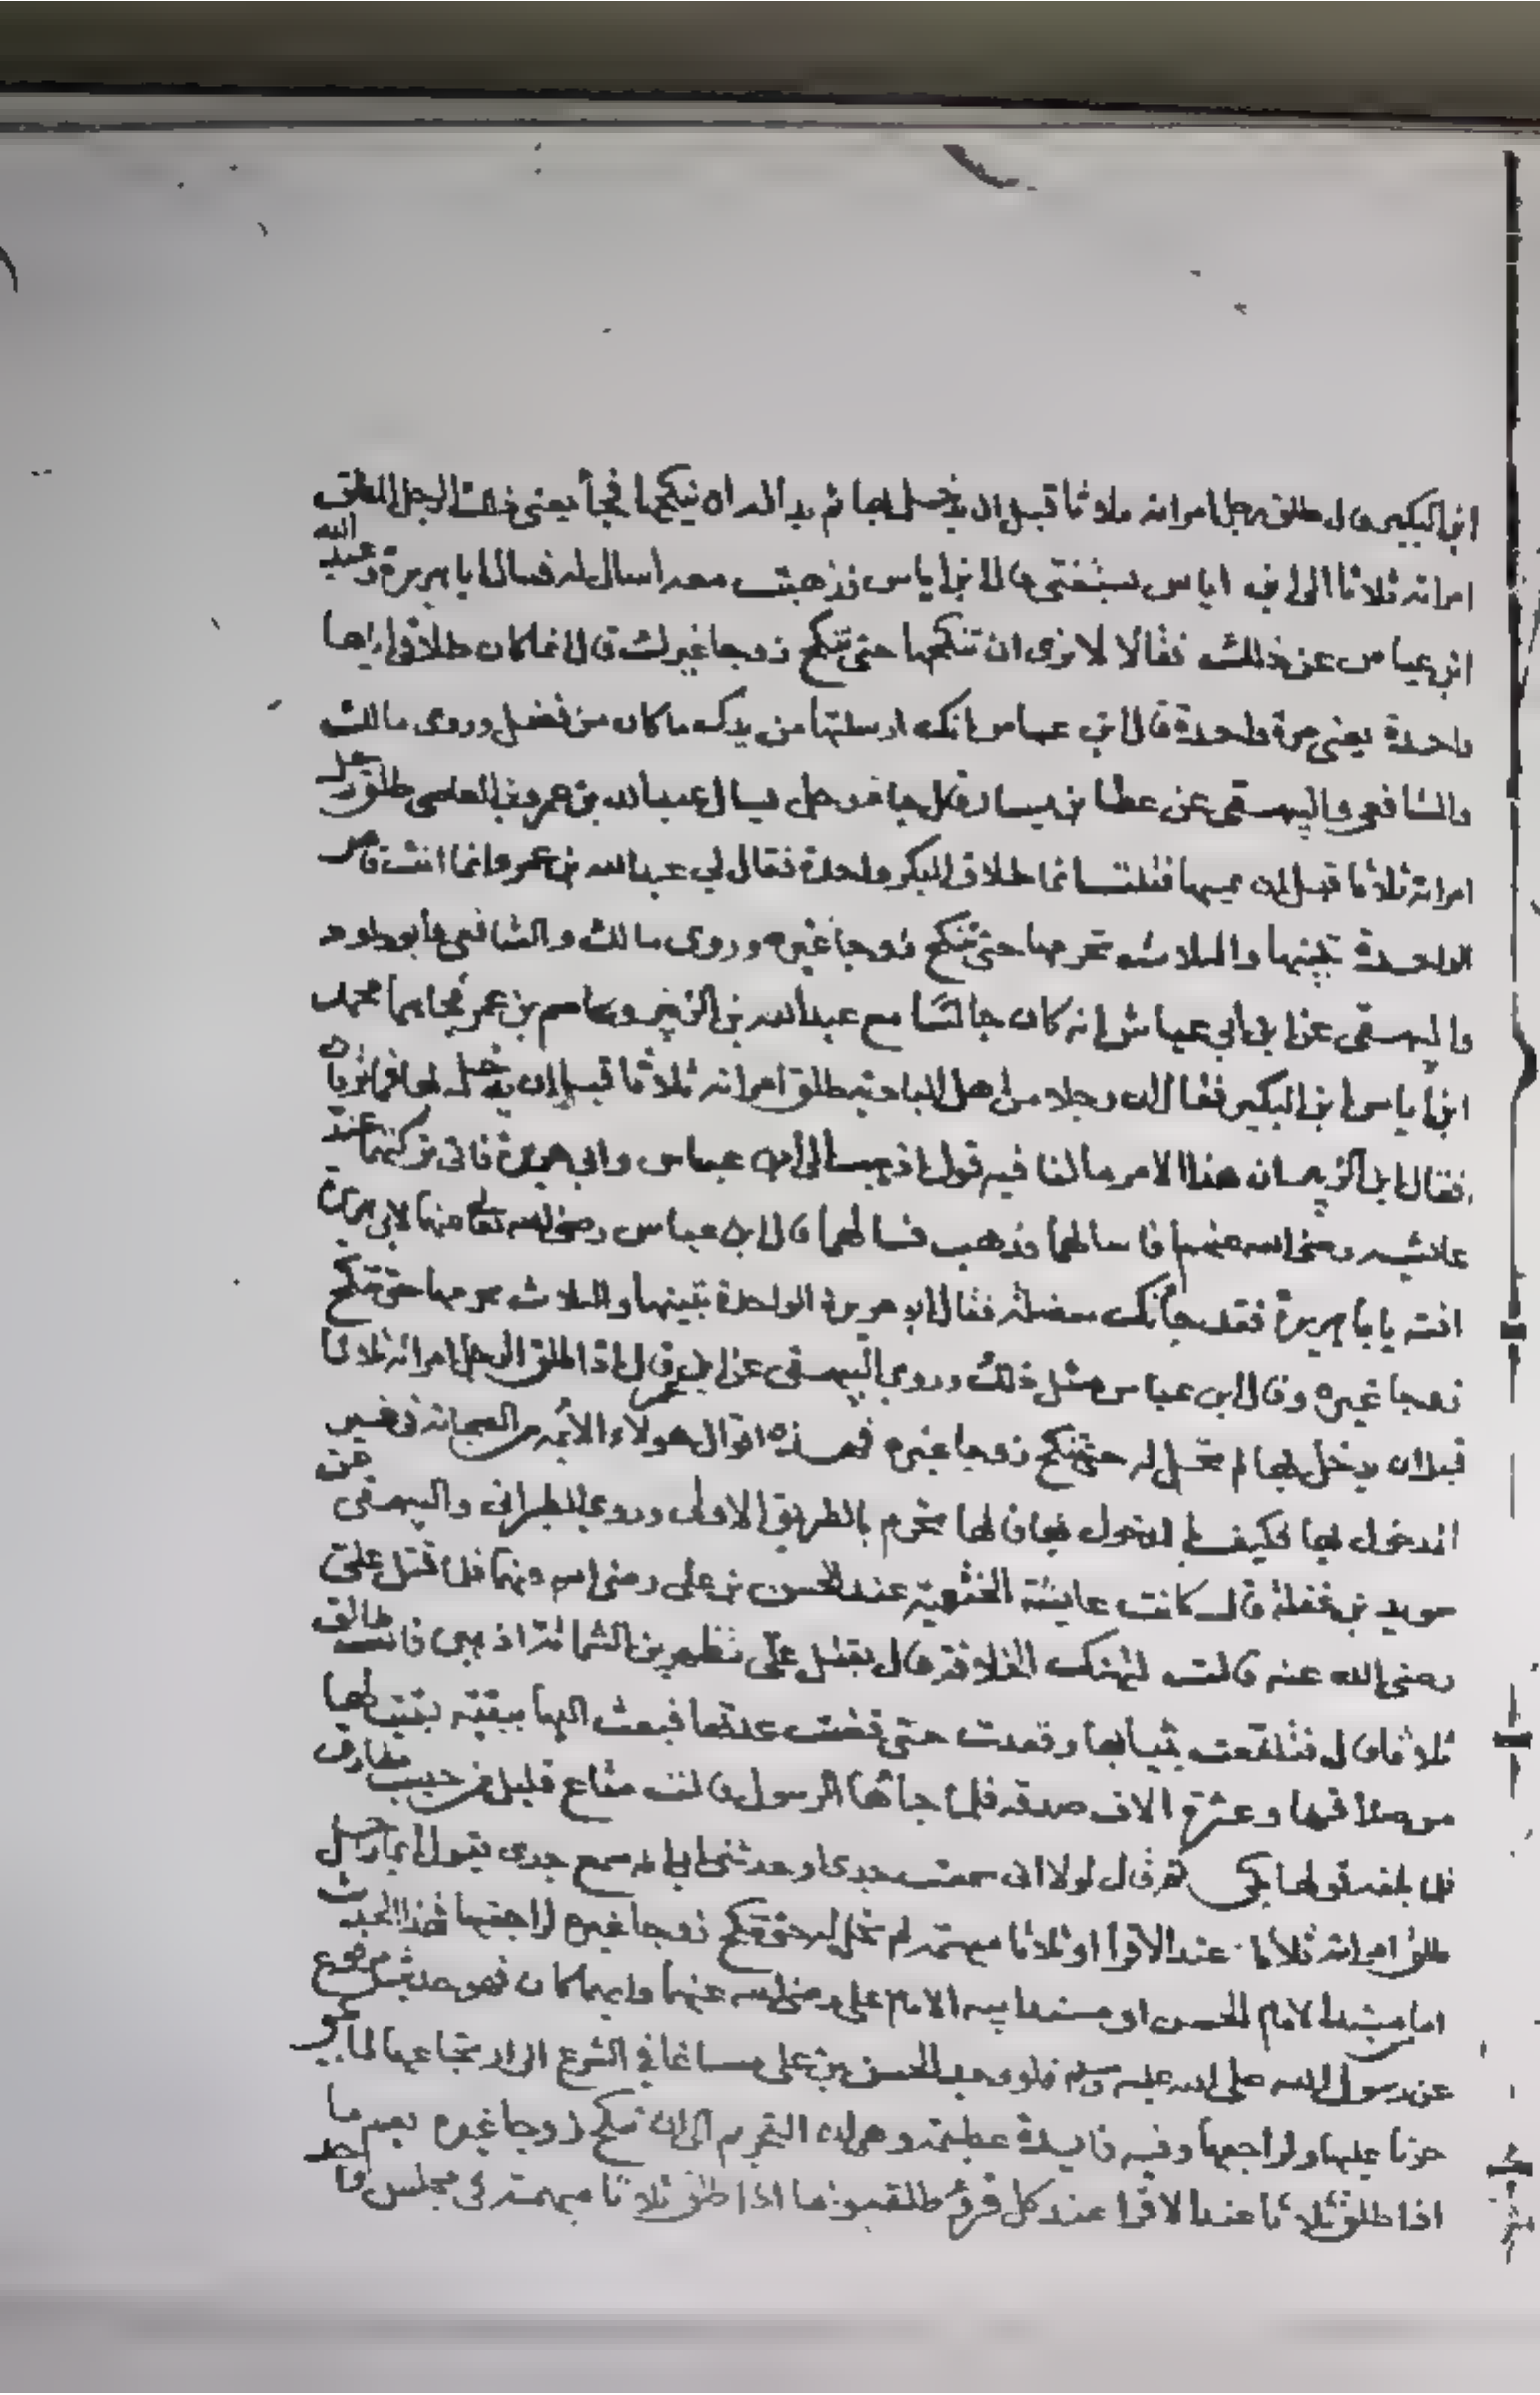 ابن البكير قال طلق رجل امراته ثلاثا قبل ان يدخل بها ثم بدا له ان ينكحها فجأ يعني ذلك الرجل المطلق
امراته ثلاثا الى ابن اياس يستفتي قال ابن اياس فذهبت معه اسال له فسال ابا هريرة وعبد الله
ابن عباس عن ذلك فقالا لا نرى ان تنكحها حتى تنكح زوجا غيرك قال انما كان طلاقي اياها
واحدة يعني مرة واحدة قال ابن عباس انك ارسلتها من يدك ما كان من فضل وروى مالك
والشافعي والبيهقي عن عطا بن يسار قال جا رجل يسال عبد الله بن عمرو بن العاصي طلق رجل
امراته ثلاثا قبل ان يمسها فقلت انما طلاق البكر واحدة فقال لي عبد الله بن عمرو انما انت قاص
الواحدة تبينها والثلاث تحرمها حتى تنكح زوجا غيره وروى مالك والشافعي وابو داود
والبيهقي عن ابن ابي عياش انه كان جالسا مع عبد الله بن الزبير وعاصم بن عمر فجاهما محمد
ابن اياس ابن البكير فقال ان رجلا من اهل البادية طلق امراته ثلاثا قبل ان يدخل بها فماذا تريان
فقال ابن الزبير ان هذا الامر ما لنا فيه قول اذهب الى ابن عباس وابي هريرة فاني تركتهما عند
عائشة رضي الله عنها فاسالهما فذهب فسالهما قال ابن عباس رضي الله تعالى عنهما لابي هريرة
افته يا با هريرة فقد جأتك معضلة فقال ابو هريرة الواحدة تبينها والثلاث تحرمها حتى تنكح
زوجا غيره وقال ابن عباس مثل ذلك وروى البيهقي عن ابن عمر قال اذا طلق الرجل امراته ثلاثا
قبل ان يدخل بها لم تحل له حتى تنكح زوجا غيره فهذه اقوال هولاء الائمة من الصحابة في غير
المدخول بها فكيف في المدخول بها فانها تحرم بالطريق الاولى وروى الطبراني والبيهقي عن
سويد بن غفلة قال كانت عايشة الخثعمية عند الحسن بن علي رضي الله عنهما فلما قتل علي
رضي الله عنه قالت لتهنك الخلافة قال بقتل علي تظهرين الشماتة اذهبي فانت طالق
ثلاثا قال فتلفعت بثيابها وقعدت حتى قضت عدتها فبعث اليها ببقية بقيت لها
من صداقها وعشرة الاف صدقة فلما جأها الرسول قالت متاع قليل من حبيب مفارق
فلما بلغه قولها بكى ثم قال لولا اني سمعت جدي او حدثني ابي انه سمع جدي يقول ايما رجل
طلق امراته ثلاثا عند الاقرأ او ثلاثا مبهمة لم تحل له حتى تنكح زوجا غيره لراجعتها فهذا الحديث
اما مسند الامام الحسن او مسند ابيه الامام علي رضي الله عنهما وايهما كان فهو حديث مرفوع
عن رسول الله صلى الله عليه وسلم فلو وجد الحسن بن علي مساغا في الشرع
حزنا عليها ولراجعها وفيه فايدة عظيمة وهي ان التحريم الى ان تنكح زوجا غيره يعم ما
اذا طلق ثلاثا عند الاقرا عند كل قرء طلقة وما اذا طلق ثلاثا مبهمة في مجلس واحد